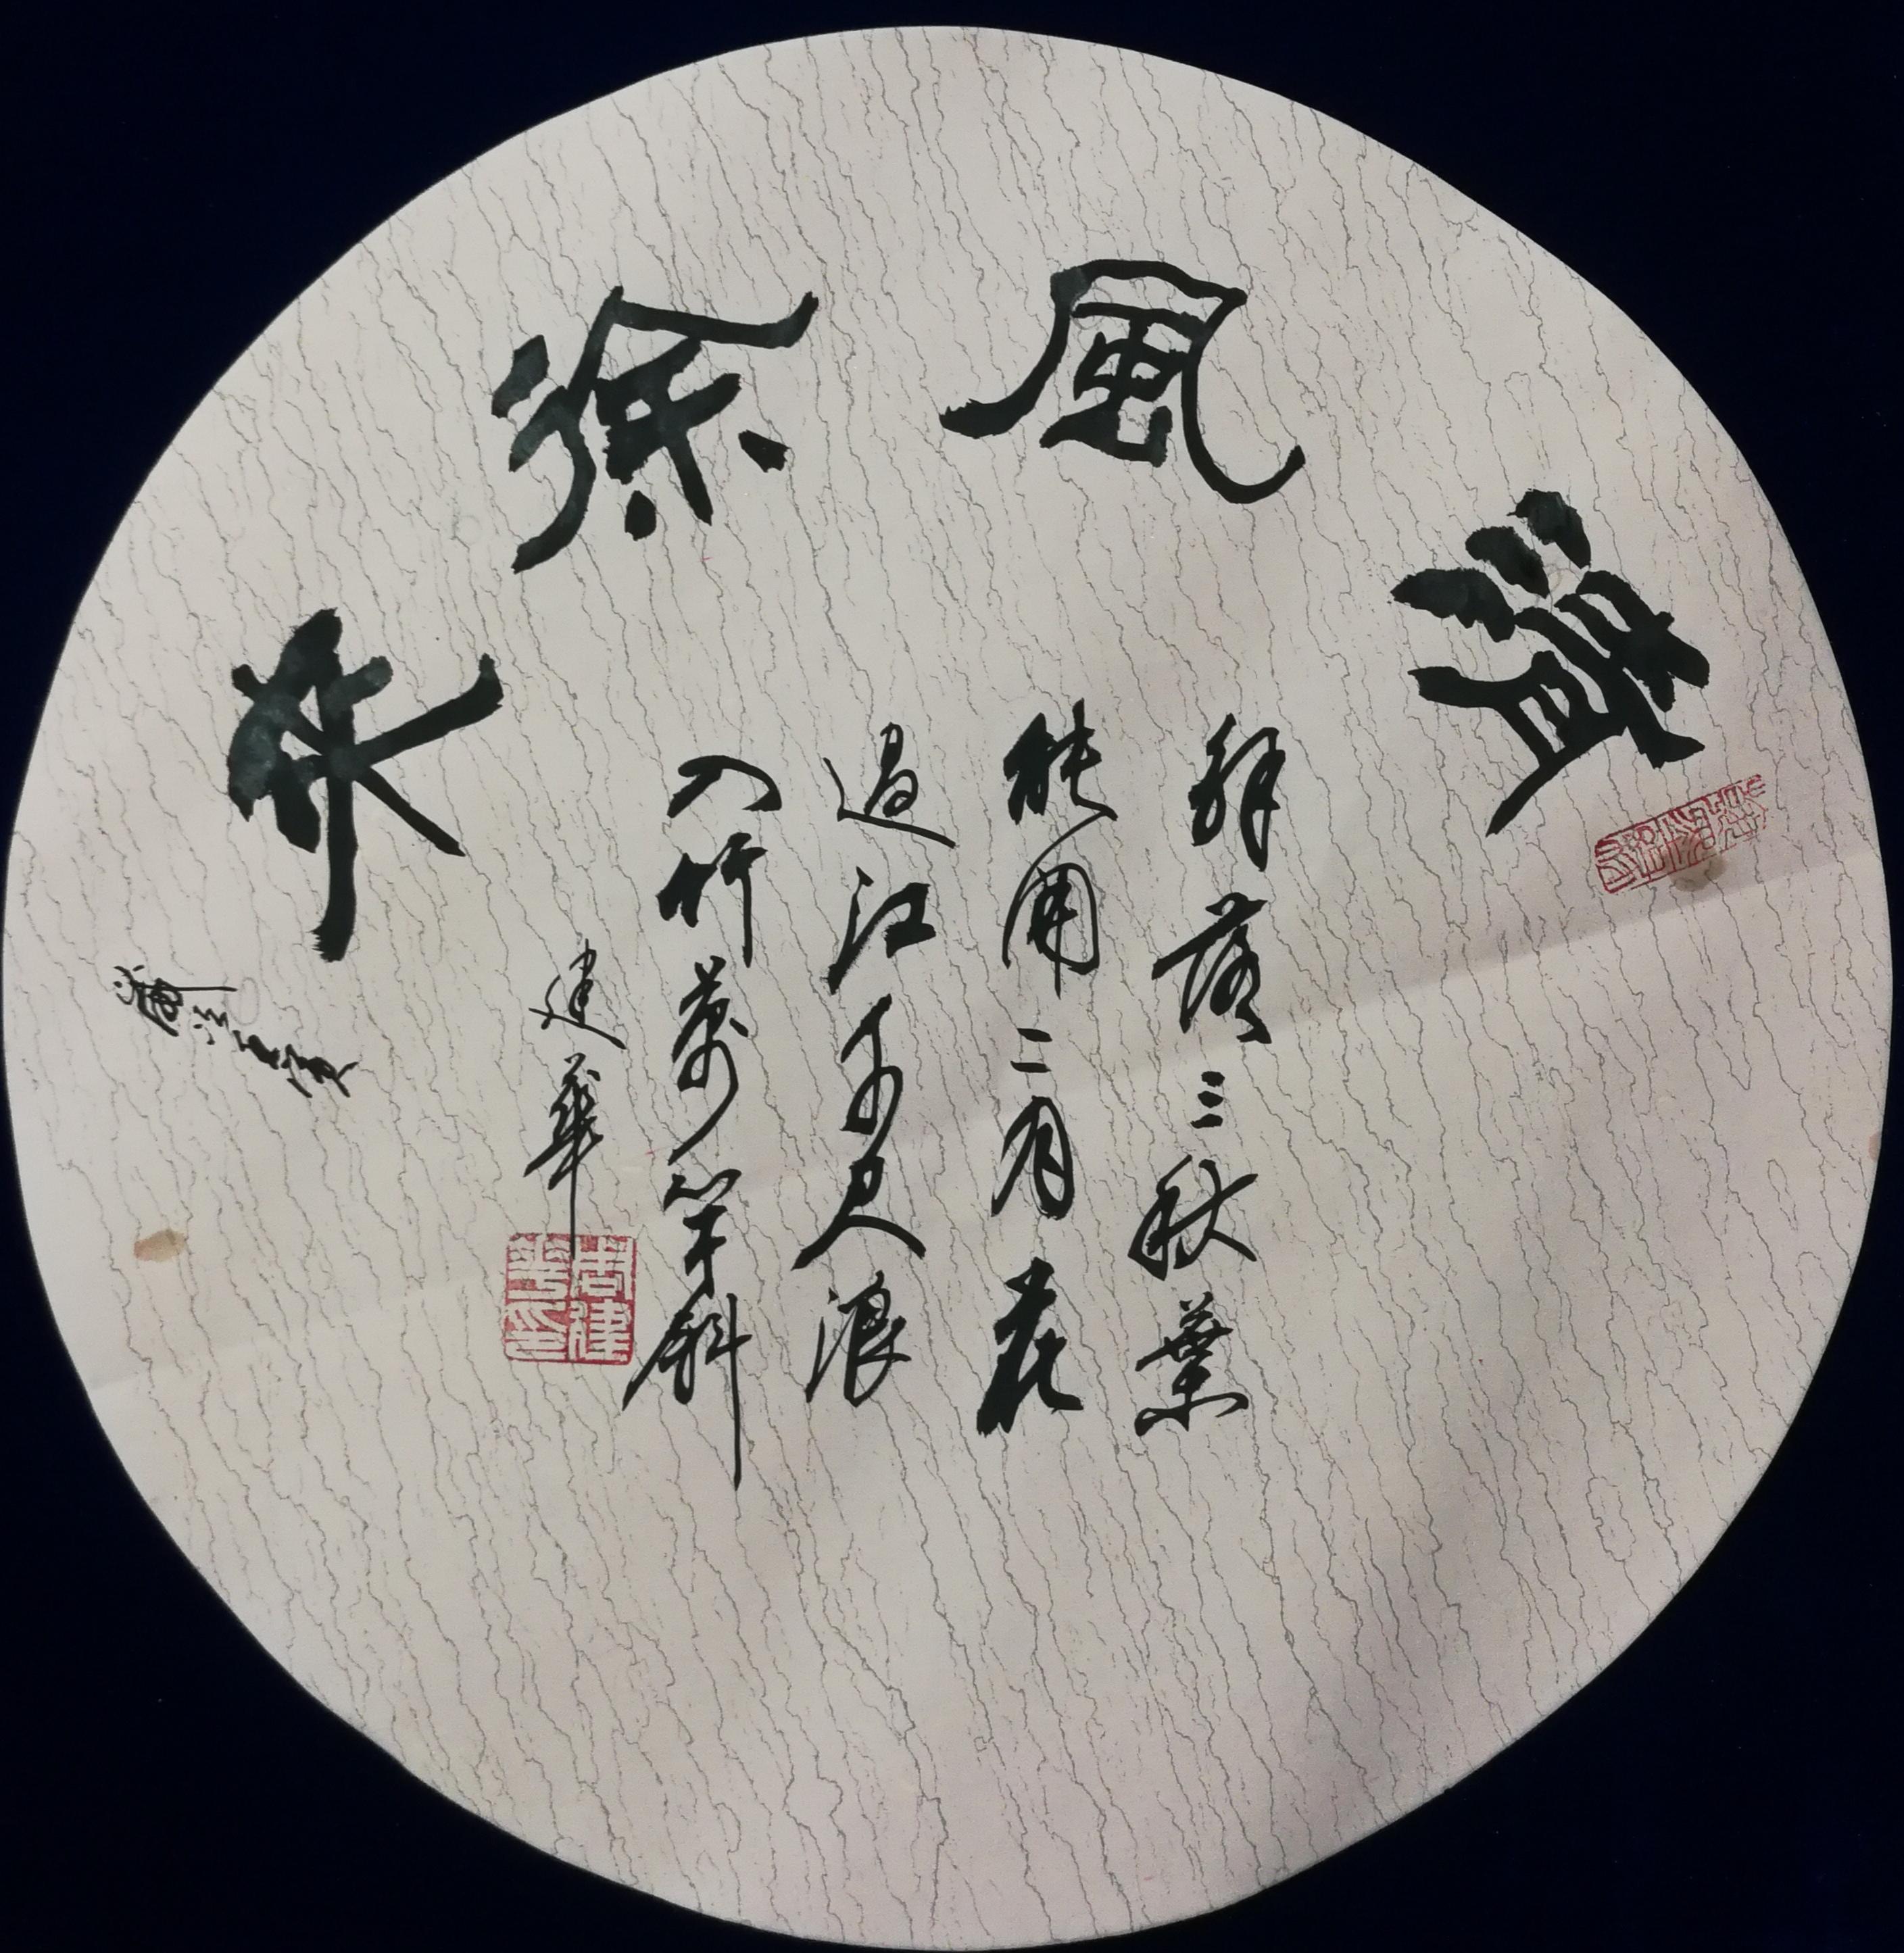 清風徐来
解落三秋葉
能開二月花
過江千尺浪
入竹萬竿斜
建華
周建華印